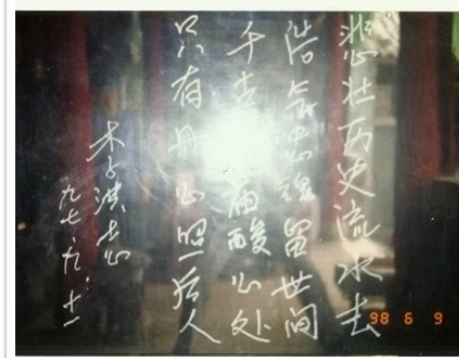 悲壮历史流水去
浩气忠魂留世间
千古 篇酸心处
只有丹心照后人
木子洪志
九七.九.十一
98 6 9